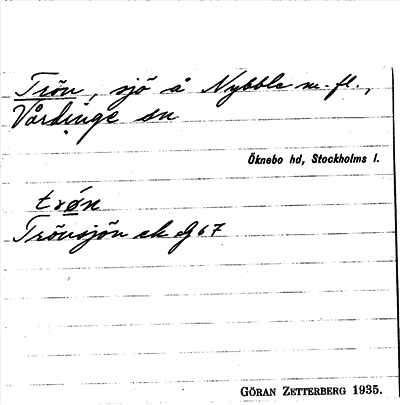 Trön, sjö å Nybble m. fl.,
Vårdinge sn
Öknebo hd, Stockholms l.
trø̄́n
Trönsjön ek G 67
GÖRAN ZETTERBERG 1935.